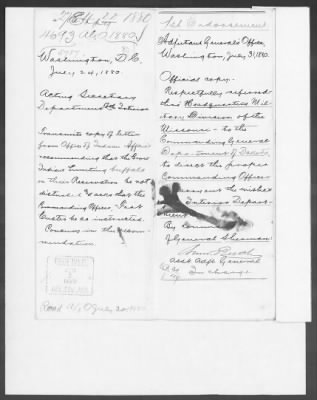 4693 A.G.O. 1880
Washington, D.C.
July 24, 1880.
Acting Secretary
Department of the Interior
Transmits copy of letter
from Office of Indian Affairs
recommending that the Crow
Indians hunting buffalo
on their Reservation be not
disturbed & asks that the
Commanding Officer, Fort
Custer be so instructed.
Concurs in the recom-
mendation.
Recd A.G.O. July 1880
1st Endorsement.
Adjutant General's Office,
Washington, July 31, 1880.
Official copy.
Respectfully referred
thro' Headquarters Mil-
itary Division of the
Missouri - to the
Commanding General
Department of Dakota,
to direct the proper
Commanding Officer
the wishes
Interior Depart-
ment.
By Comm
General Sherman:
Asst Adjt General
In charge